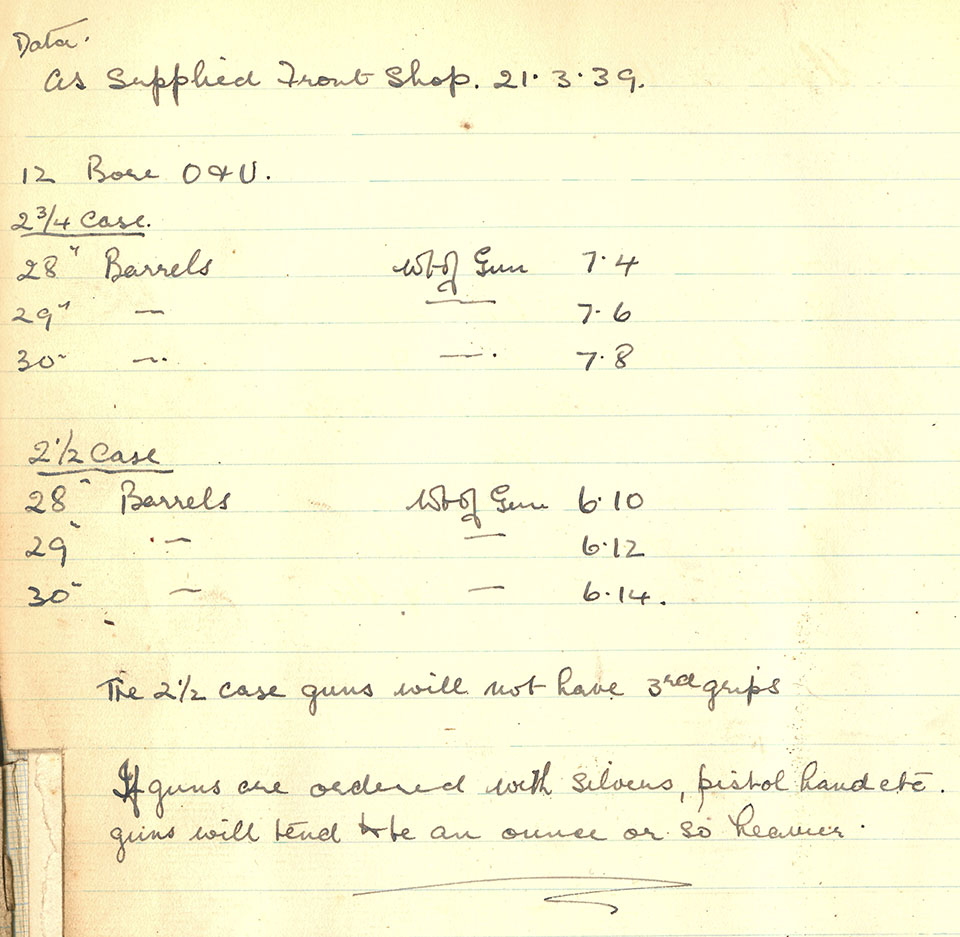 Data.
As Supplied Front Shop. 21.3.39.
12 Bore O & U.
2 3/4 Case.
28" Barrels Wt of Gun 7.4
29" — — 7.6
30" — — 7.8
2 1/2 Case
28" Barrels Wt of Gun 6.10
29" — — 6.12
30" — — 6.14.
The 2 1/2 case guns will not have 3rd grips
If guns are ordered with silvers, pistol hand etc.
guns will tend to be an ounce or so heavier.